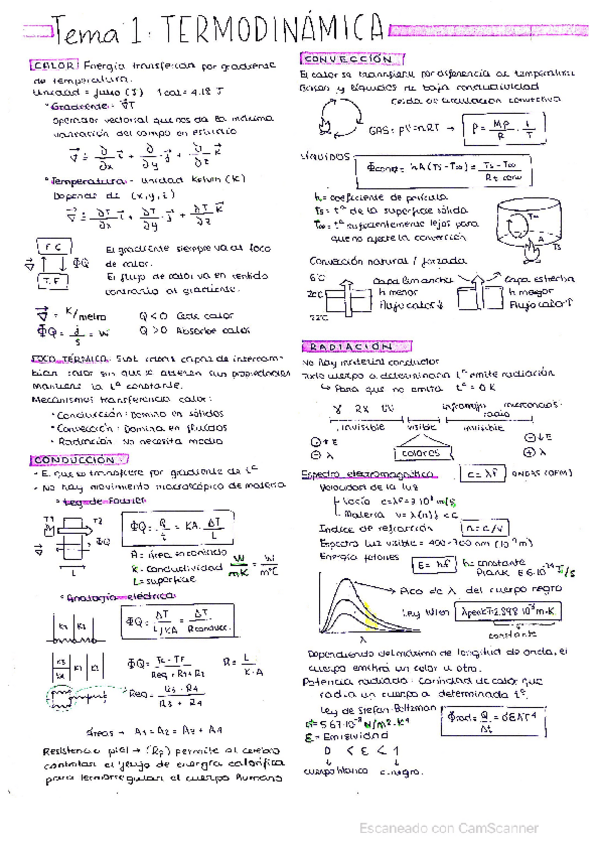 Tema 1: TERMODINÁMICA
CALOR: Energía transferida por gradiente
de temperatura.
Unidad = Julio (J) 1 cal = 4.18 J
° Gradiente: ∇T
Operador vectorial que nos da la máxima
variación del campo en
∇ = ∂/∂x i + ∂/∂y j + ∂/∂z k
° Temperatura - unidad Kelvin (K)
Depende de (x, y, z)
∇ = ΔT/Δx i + ΔT/Δy j + ΔT/Δz k
F C
ΦQ
T. F
El gradiente siempre va al foco
de calor.
El flujo de calor va en sentido
contrario al gradiente.
∇ = K/metro Q < 0 Cede calor
ΦQ = J/s = W Q > 0 Absorbe calor
FOCO TÉRMICO:
bian calor sin que se alteren sus propiedades
mantiene la tª constante.
Mecanismos transferencia calor:
• Conducción: Domina en sólidos
• Convección: Domina en fluidos
• Radiación: No necesita medio
CONDUCCIÓN:
- E. que se transfiere por gradiente de tª
- No hay movimiento macroscópico de materia
° Ley de Fourier
T1 T2
ΦQ
L
ΦQ = Q/t = KA · ΔT/L
A = área
K = Conductividad W/mK
L = superficie
° Analogía eléctrica
ΦQ = ΔT / L/KA = ΔT / Rconduc.
ΦQ = Tc - TF / Req = R1 + R2
R = L / K·A
Req = R3 · R4 / R3 + R4
áreas → A1 = A2 = A3 + A4
Resistencia piel → (Rp) permite al cerebro
controlar el flujo de energía calorífica
para termorregular el cuerpo humano
CONVECCIÓN
El calor se transfiere por diferencia de temperatura
Gases y líquidos de baja conductividad
Celda de circulación convectiva
GAS: PV = nRT → ρ = MP/R · 1/T
LÍQUIDOS
Φconv = hA (Ts - T∞) = Ts - T∞ / Rt conv
h = coeficiente de película
Ts = tª de la superficie sólida
T∞ = tª suficientemente lejos para
que no afecte la convección
T∞
A
Ts
Convección natural / forzada
Capa ancha
h menor
Flujo calor ↓
Capa estrecha
h mayor
Flujo calor ↑
RADIACIÓN
No hay material conductor
Todo cuerpo a determinada tª emite radiación
↳ Para que no emita tª = 0 K
γ RX UV infrarrojo microondas radio
invisible visible invisible
colores
Espectro electromagnético c = λf ONDAS (OEM)
Velocidad de la luz
Vacío c = λf = 3·10⁸ m/s
Materia v = λ(n)f < c
Índice de refracción n = c/v
Espectro luz visible = 400-700 nm (10⁻⁹ m)
Energía fotones E = hf h = constante
Plank
Pico de λ del cuerpo negro
Ley Wien λpeak T = 2.898·10⁻³ m·K
constante
λ
Dependiendo del máximo de longitud de onda, el
cuerpo emitirá un color u otro.
Potencia radiada: cantidad de calor que
radia un cuerpo a determinada tª
Ley de Stefan-Boltzman
σ = 5.67·10⁻⁸ W/m²·K⁴
Φrad = Q/Δt = σεAT⁴
ε = Emisividad
0 < ε < 1
cuerpo blanco c. negro.
Escaneado con CamScanner